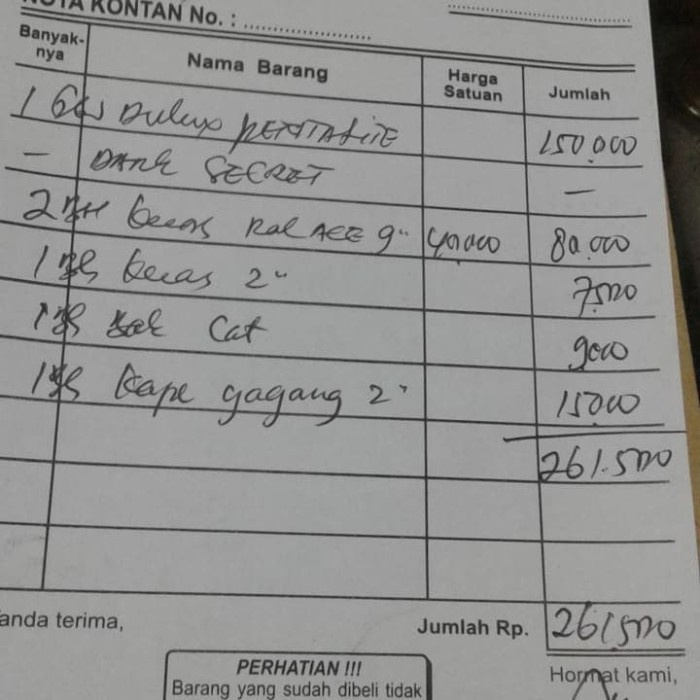 NOTA KONTAN No. : ....................
Banyak-nya Nama Barang Harga Satuan Jumlah
1 Dulux PENTALITE 150.000
- DARK SECRET -
2 kuas Rol ACE 9" 40.000 80.000
1 kuas 2" 7500
1 bak Cat 9000
1 kape gagang 2" 15000
261.500
anda terima, Jumlah Rp. 261.500
PERHATIAN !!! Hormat kami,
Barang yang sudah dibeli tidak